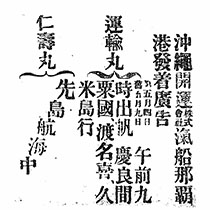 沖繩開運株式会社汽船那覇
港發着廣告
運輸丸
第五月四日
舊五月九日
午前九
時出帆慶良間
粟國渡名喜久
米島行
仁壽丸
先島航海中